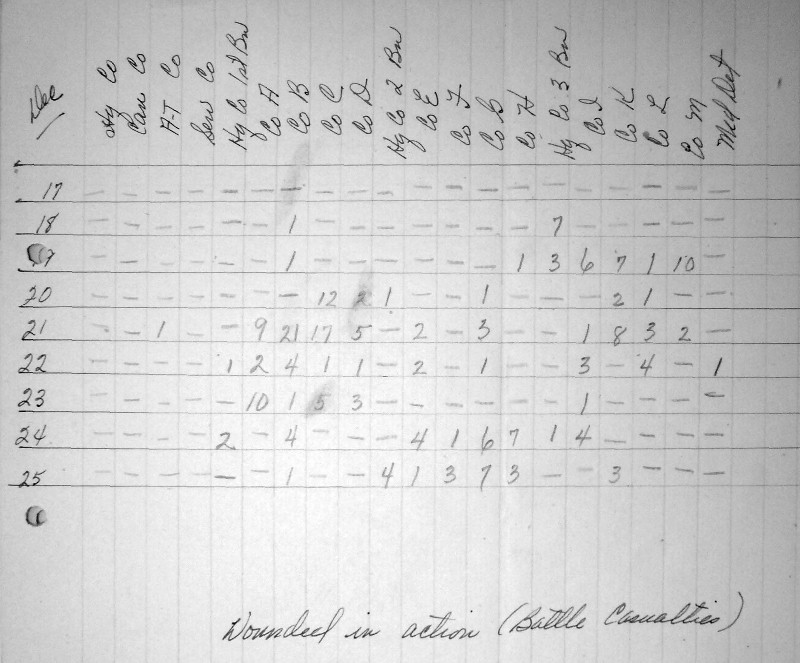 Dec Hq Co Can Co A-T Co Serv Co Hq Co 1st Bn Co A Co B Co C Co D Hq Co 2 Bn Co E Co F Co G Co H Hq Co 3 Bn Co I Co K Co L Co M Med Det
17 - - - - - - - - - - - - - - - - - - - -
18 - - - - - - 1 - - - - - - - 7 - - - - -
19 - - - - - - 1 - - - - - - 1 3 6 7 1 10 -
20 - - - - - - - 12 2 1 - - 1 - - - 2 1 - -
21 - - 1 - - 9 21 17 5 - 2 - 3 - - 1 8 3 2 -
22 - - - - 1 2 4 1 1 - 2 - 1 - - 3 - 4 - 1
23 - - - - - 10 1 5 3 - - - - - - 1 - - - -
24 - - - - 2 - 4 - - - 4 1 6 7 1 4 - - - -
25 - - - - - - 1 - - 4 1 3 7 3 - - 3 - - -
Wounded in action (Battle Casualties)